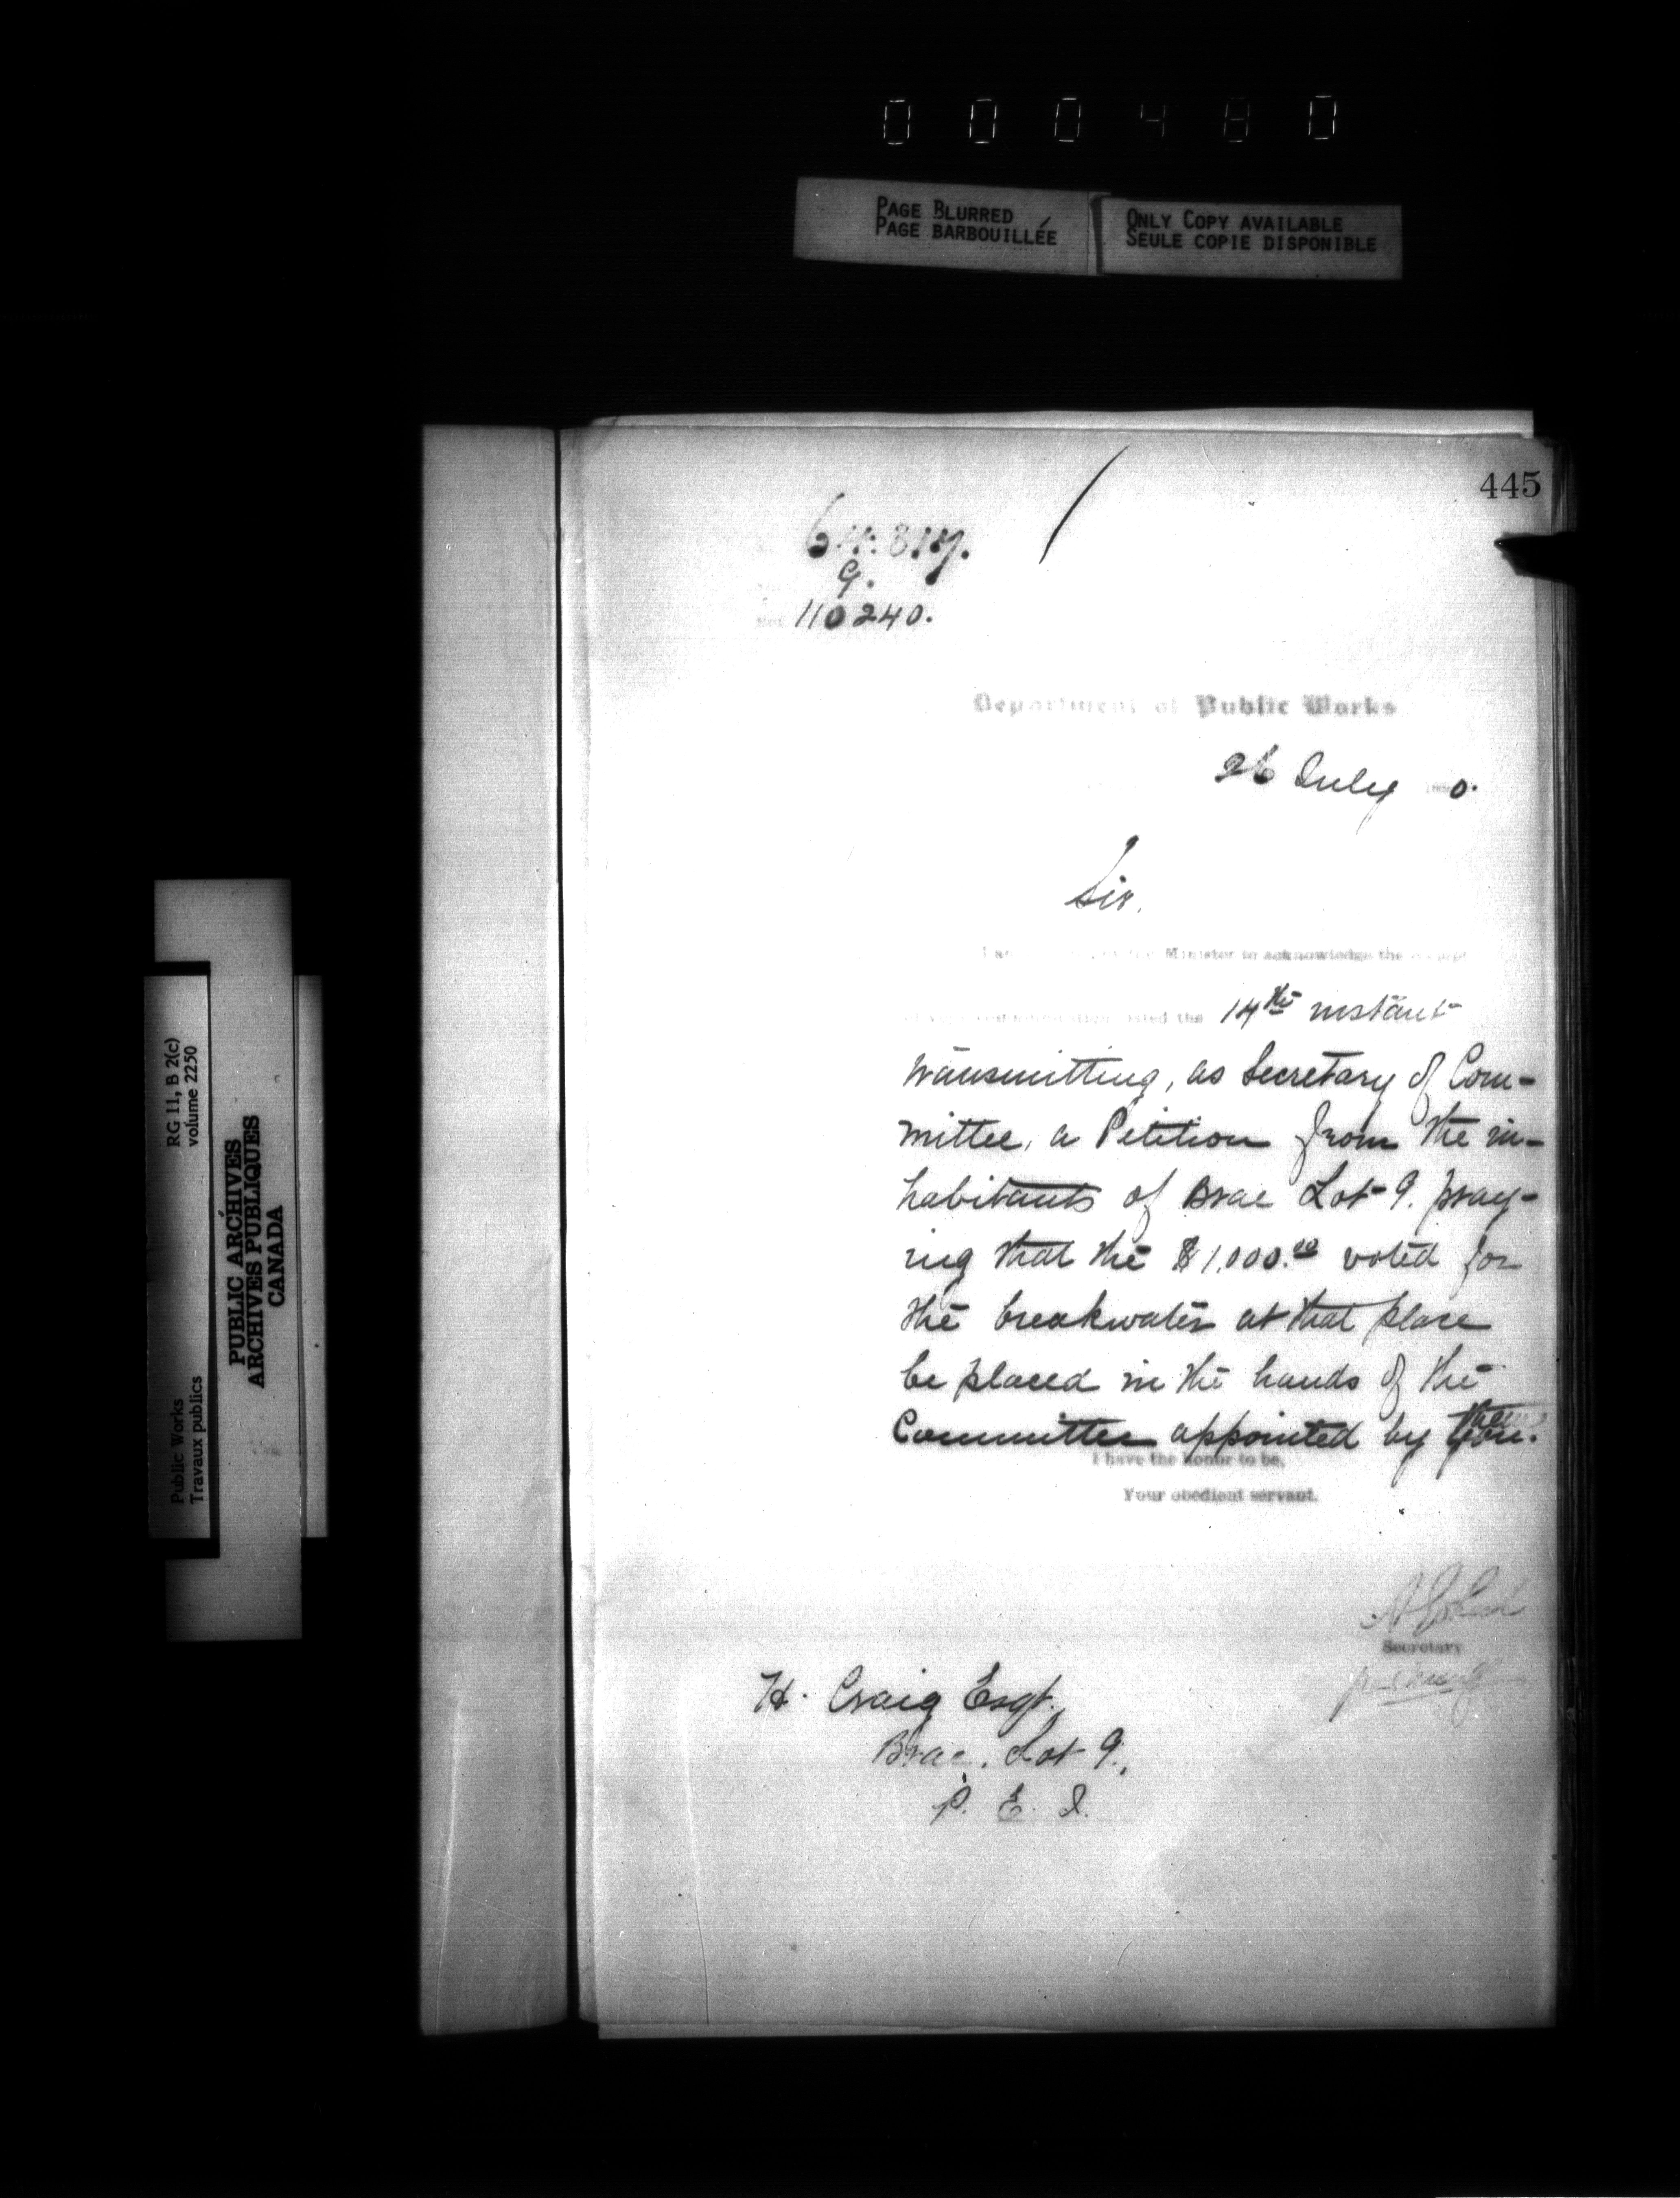 000480
PAGE BLURRED
PAGE BARBOUILLÉE
ONLY COPY AVAILABLE
SEULE COPIE DISPONIBLE
445
9.
110240.
Department of Public Works
26 July 1880.
Sir,
Minister to acknowledge the
the 14th instant
transmitting, as Secretary of Com-
mittee, a Petition from the in-
habitants of Brae Lot 9. pray-
ing that the $1,000.00 voted for
the breakwater at that place
be placed in the hands of the
Committee appointed by them.
I have the honor to be,
Your obedient servant.
Secretary
H. Craig Esqr.
Brae, Lot 9,
P. E. I.
Public Works
Travaux publics
RG 11, B 2(c)
volume 2250
PUBLIC ARCHIVES
ARCHIVES PUBLIQUES
CANADA